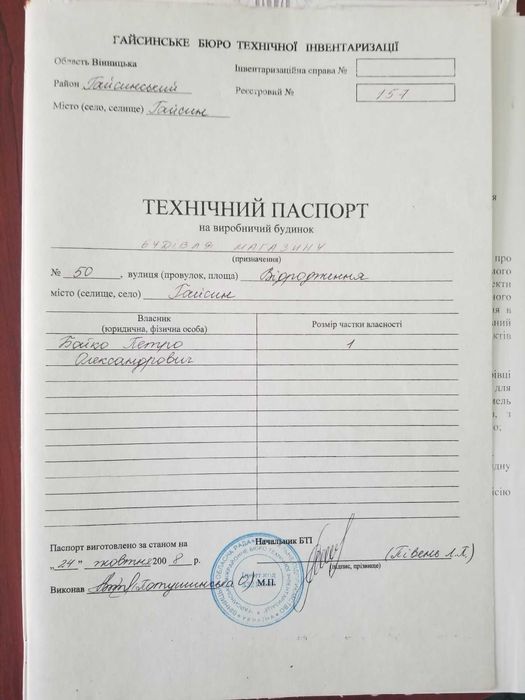 ГАЙСИНСЬКЕ БЮРО ТЕХНІЧНОЇ ІНВЕНТАРИЗАЦІЇ
Область Вінницька
Інвентаризаційна справа №
Район Гайсинський
Реєстровий № 151
Місто (село, селище) Гайсин
ТЕХНІЧНИЙ ПАСПОРТ
на виробничий будинок
БУДІВЛЯ МАГАЗИНУ
(призначення)
№ 50, вулиця (провулок, площа) Відродження
місто (селище, село) Гайсин
Власник
(юридична, фізична особа)
Розмір частки власності
Бойко Петро
Олександрович
1
Паспорт виготовлено за станом на
"24" жовтня 2008 р.
Начальник БТІ
(Півень Л.П.)
(підпис, прізвище)
Виконав
М.П.